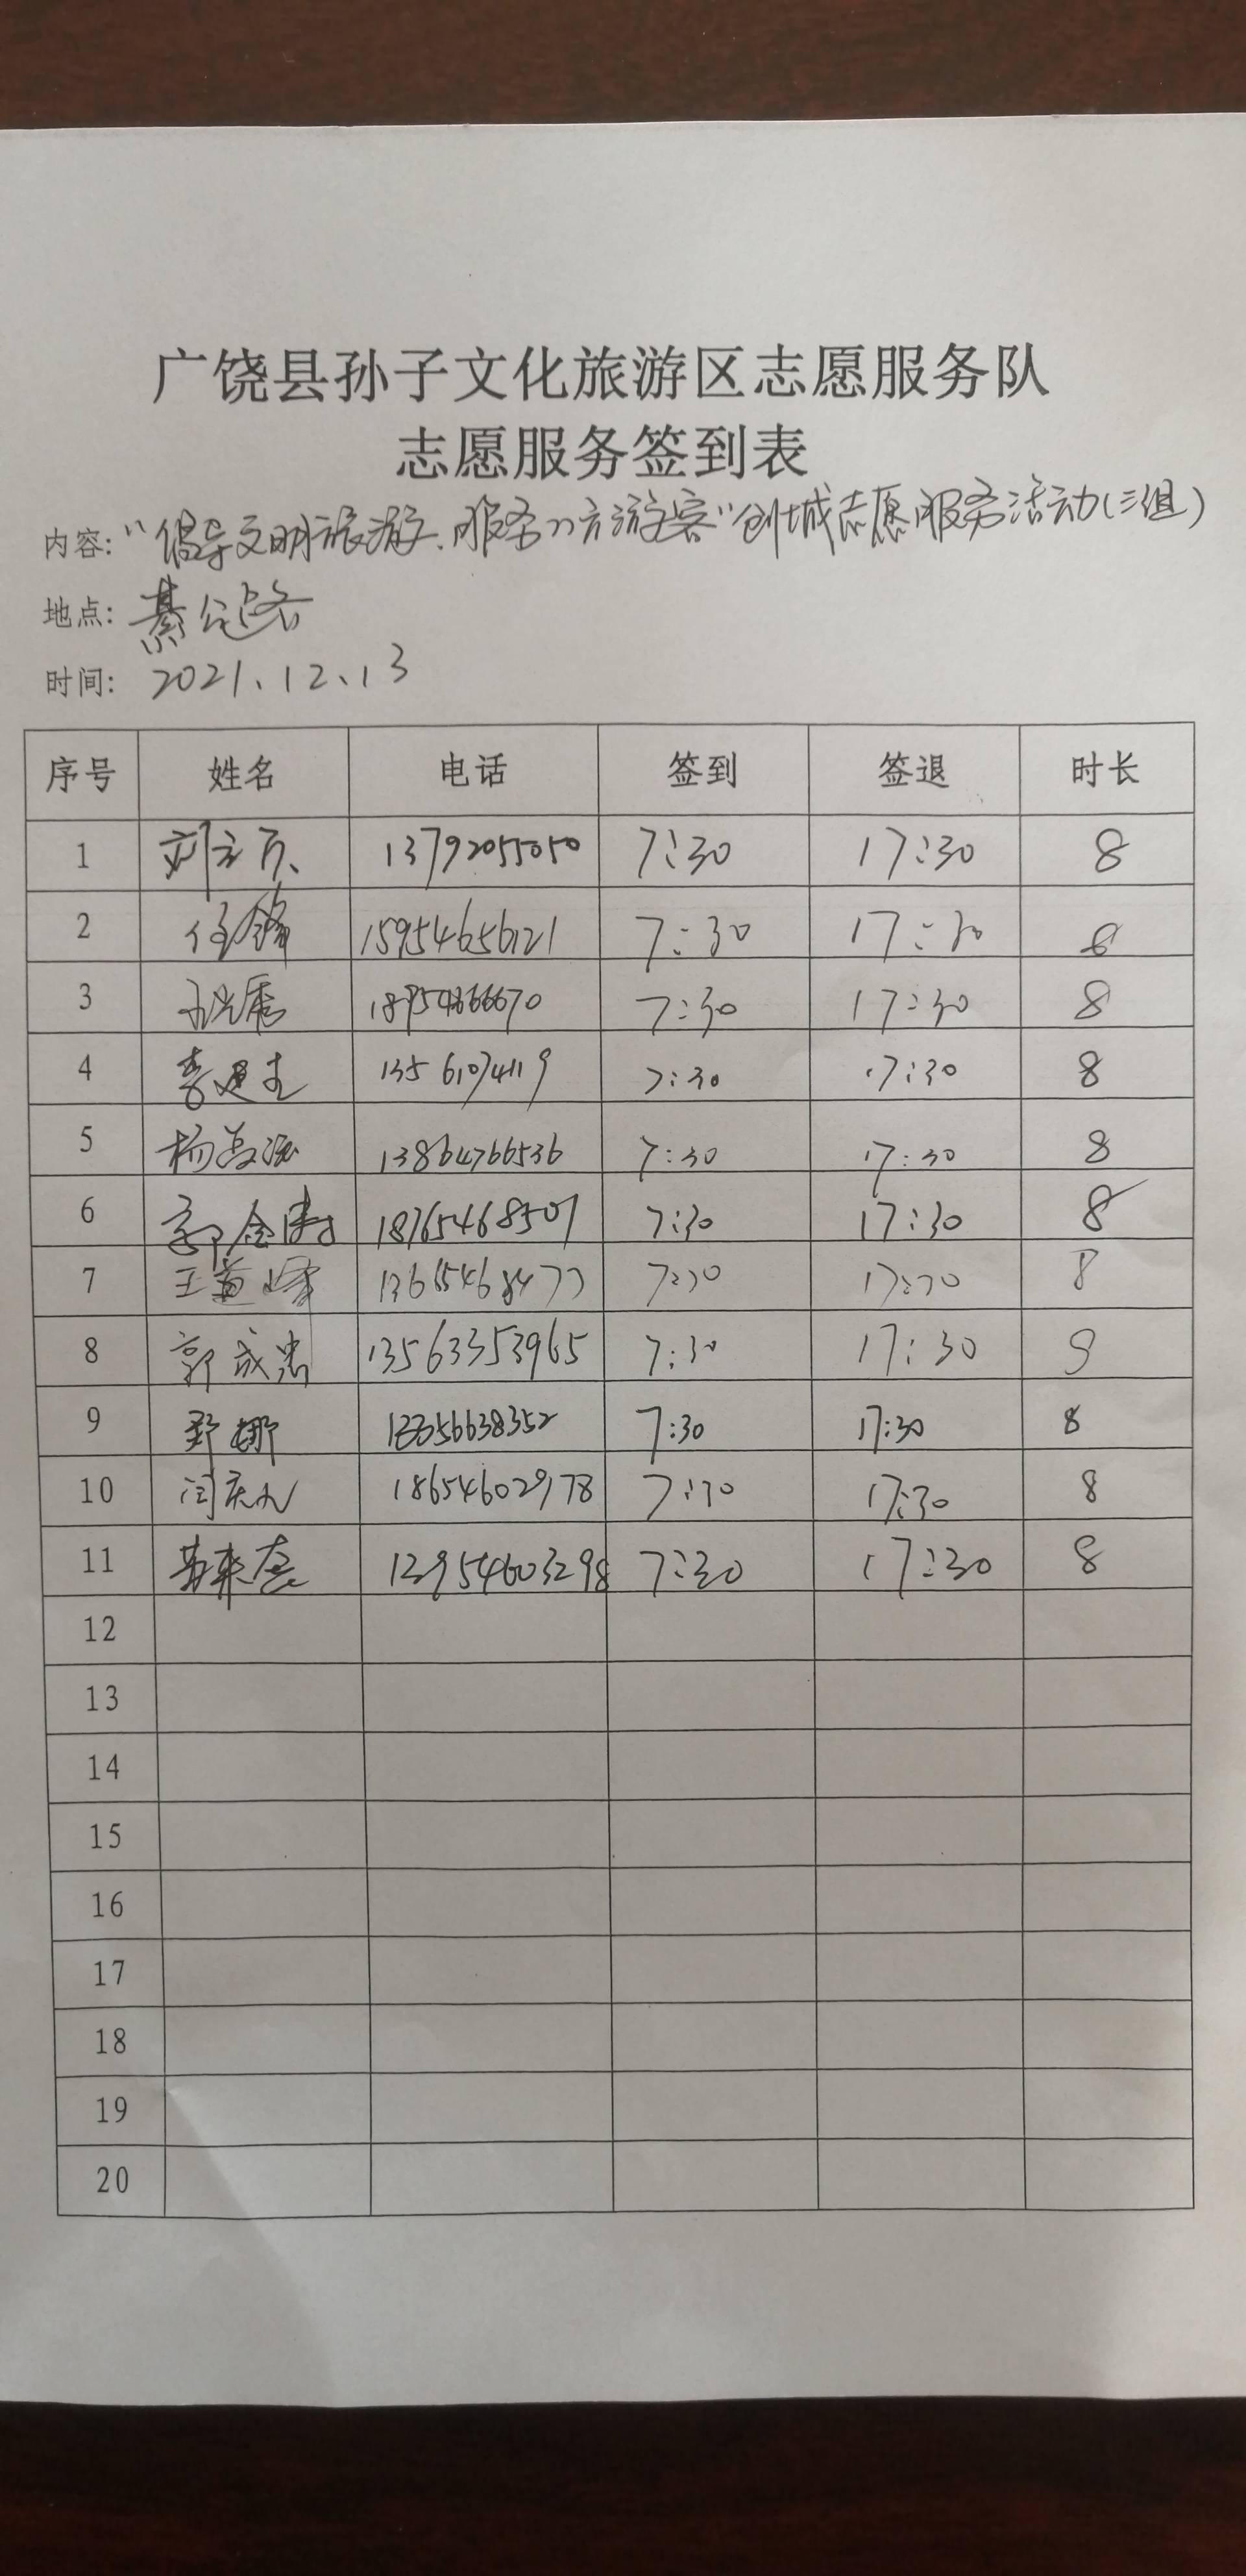 广饶县孙子文化旅游区志愿服务队
志愿服务签到表
内容:"倡导文明旅游、服务八方游客"创城志愿服务活动(三组)
地点: 公路
时间: 2021.12.13
序号 姓名 电话 签到 签退 时长
1 刘 13792055050 7:30 17:30 8
2 任锋 15954656121 7:30 17:30 8
3 7:30 17:30 8
4 李建 13561074119 7:30 17:30 8
5 杨 13864766536 7:30 17:30 8
6 郭金 18765468507 7:30 17:30 8
7 王益峰 13665468477 7:30 17:30 8
8 郭成忠 13563353965 7:30 17:30 8
9 娜 7:30 17:30 8
10 闫庆 18654602978 7:30 17:30 8
11 13954603298 7:30 17:30 8
12
13
14
15
16
17
18
19
20